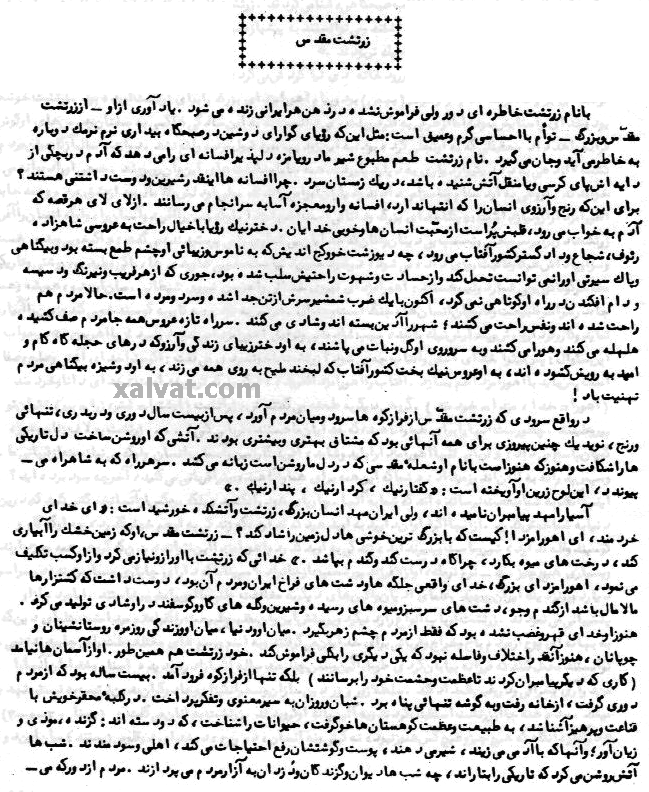 زرتشت مقدس
بانام زرتشت خاطره ای دور ولی فراموش نشده در ذهن هر ایرانی زنده می شود . یاد آوری از او ــ از زرتشت
مقدّس و بزرگ ــ توأم با احساسی گرم و عمیق است : مثل این که رؤیای گوارای دوشین در صبحگاه بیداری نرم نرمك دوباره
به خاطر می آید و جان می گیرد . نام زرتشت طعم مطبوع شیر مادر و یا مزه دلپذیر افسانه ای را می دهد که آدم در بچگی از
دایه اش پای کرسی و یا منقل آتش شنیده باشد ، در یك زمستان سرد . چرا افسانه ها اینقدر شیرین و دوست داشتنی هستند ؟
برای این که رنج و آرزوی انسان را که انتها ندارد ، افسانه وار و معجزه آسا به سرانجام می رسانند . از لای لای هر قصه که
آدم به خواب می رود ، قلبش پر است از محبّت انسان ها و خوبی خدایان . دختر نیك رؤیا با خیال راحت به عروسی شاهزاده
رئوف ، شجاع و دادگستر کشور آفتاب می رود ، چه دیو زشت خوی کج اندیش که به ناموس و زیبائی او چشم طمع بسته بود و بیگناهی
و پاك سیرتی او را نمی توانست تحمل کند و از حسادت و شهوت راحتیش سلب شده بود ، جوری که از هر فریب و نیرنگ و دسیسه
و دام افکندن در راه او کوتاهی نمی کرد ، اکنون با یك ضرب شمشیر سرش از تن جدا شده و سرد و مرده است . حالا مردم هم
راحت شده اند و نفس راحت می کشند ؛ شهر را آذین بسته اند و شادی می کنند . سر راه تازه عروس همه جا مردم صف کشیده ،
هلهله می کنند و هورا می کشند و به سر و روی او گل و نبات می پاشند ، به او دختر زیبای زندگی و آرزو که درهای حجله گاه کام و
امید به رویش گشوده اند ، به او عروس نیك بخت کشور آفتاب که لبخند ملیح به روی همه می زند ، به او دوشیزه بیگناهی مردم
تهنیت باد !
در واقع سرودی که زرتشت مقدّس از فراز کوه ها سرود و میان مردم آورد ، پس از بیست سال دوری و دربدری ، تنهائی
و رنج ، نوید یك چنین پیروزی برای همه آنهائی بود که مشتاق بهتری و بیشتری بودند . آتشی که او روشن ساخت دل تاریکی
ها را شکافت و هنوز که هنوز است با نام او شعله مقدسی که در دل ما روشن است زبانه می کند . سر هر راه که به شاهراه می ــ
پیوندد ، این لوح زرین او آویخته است : « گفتار نیك ، کردار نیك ، پندار نیك » .
آسیا را مهد پیامبران نامیده اند ، ولی ایران مهد انسان بزرگ ، زرتشت و آتشکده خورشید است : « ای خدای
خردمند ، ای اهورامزدا ! کیست که با بزرگ ترین خوشی ها دل زمین را شاد کند ؟ ــ زرتشت مقدس ، او که زمین خشك را آبیاری
کند ، درخت های میوه بکارد ، چراگاه درست کند و گندم بپاشد . » خدائی که زرتشت با او راز و نیاز می کرد و از او کسب تکلیف
می نمود ، اهورامزدای بزرگ ، خدای واقعی جلگه ها و دشت های فراخ ایران و مردم آن بود ، دوست داشت که کشتزارها
مالامال باشد از گندم و جو ، دشت های سرسبز و میوه های رسیده و شیرین و گله های گاو و گوسفند در او شادی تولید می کرد .
هنوز او خدای قهر و غضب نشده بود که فقط از مردم چشم زهر بگیرد . میان او و دنیا ، میان او و زندگی روزمره روستانشینان و
چوپانان ، هنوز آنقدر اختلاف و فاصله نبود که یکی دیگری را بکلی فراموش کند . خود زرتشت هم همین طور . او از آسمان ها نیامد
( کاری که دیگر پیامبران کردند تا عظمت و حشمت خود را برسانند ) بلکه تنها از فراز کوه فرود آمد . بیست ساله بود که از مردم
دوری گرفت ، از خانه رفت و به گوشه تنهائی پناه برد . شبان و روزان به سیر معنوی و تفکر پرداخت . در کلبه محقر خویش با
قناعت و پرهیز آشنا شد ، به طبیعت و عظمت کوهستان ها خو گرفت ، حیوانات را شناخت ، که دو دسته اند : گزنده ، موذی و
زیان آور ؛ و آنها که با آدمی می زیند ، شیر می دهند ، پوست و گوشتشان رفع احتیاجات می کند ، اهلی و سودمندند . شب ها
آتش روشن می کرد که تاریکی را بتاراند ، چه شب ها دیوان و گزندگان و دزدان به آزار مردم می پردازند . مردم از دور که می ــ
xalvat.com